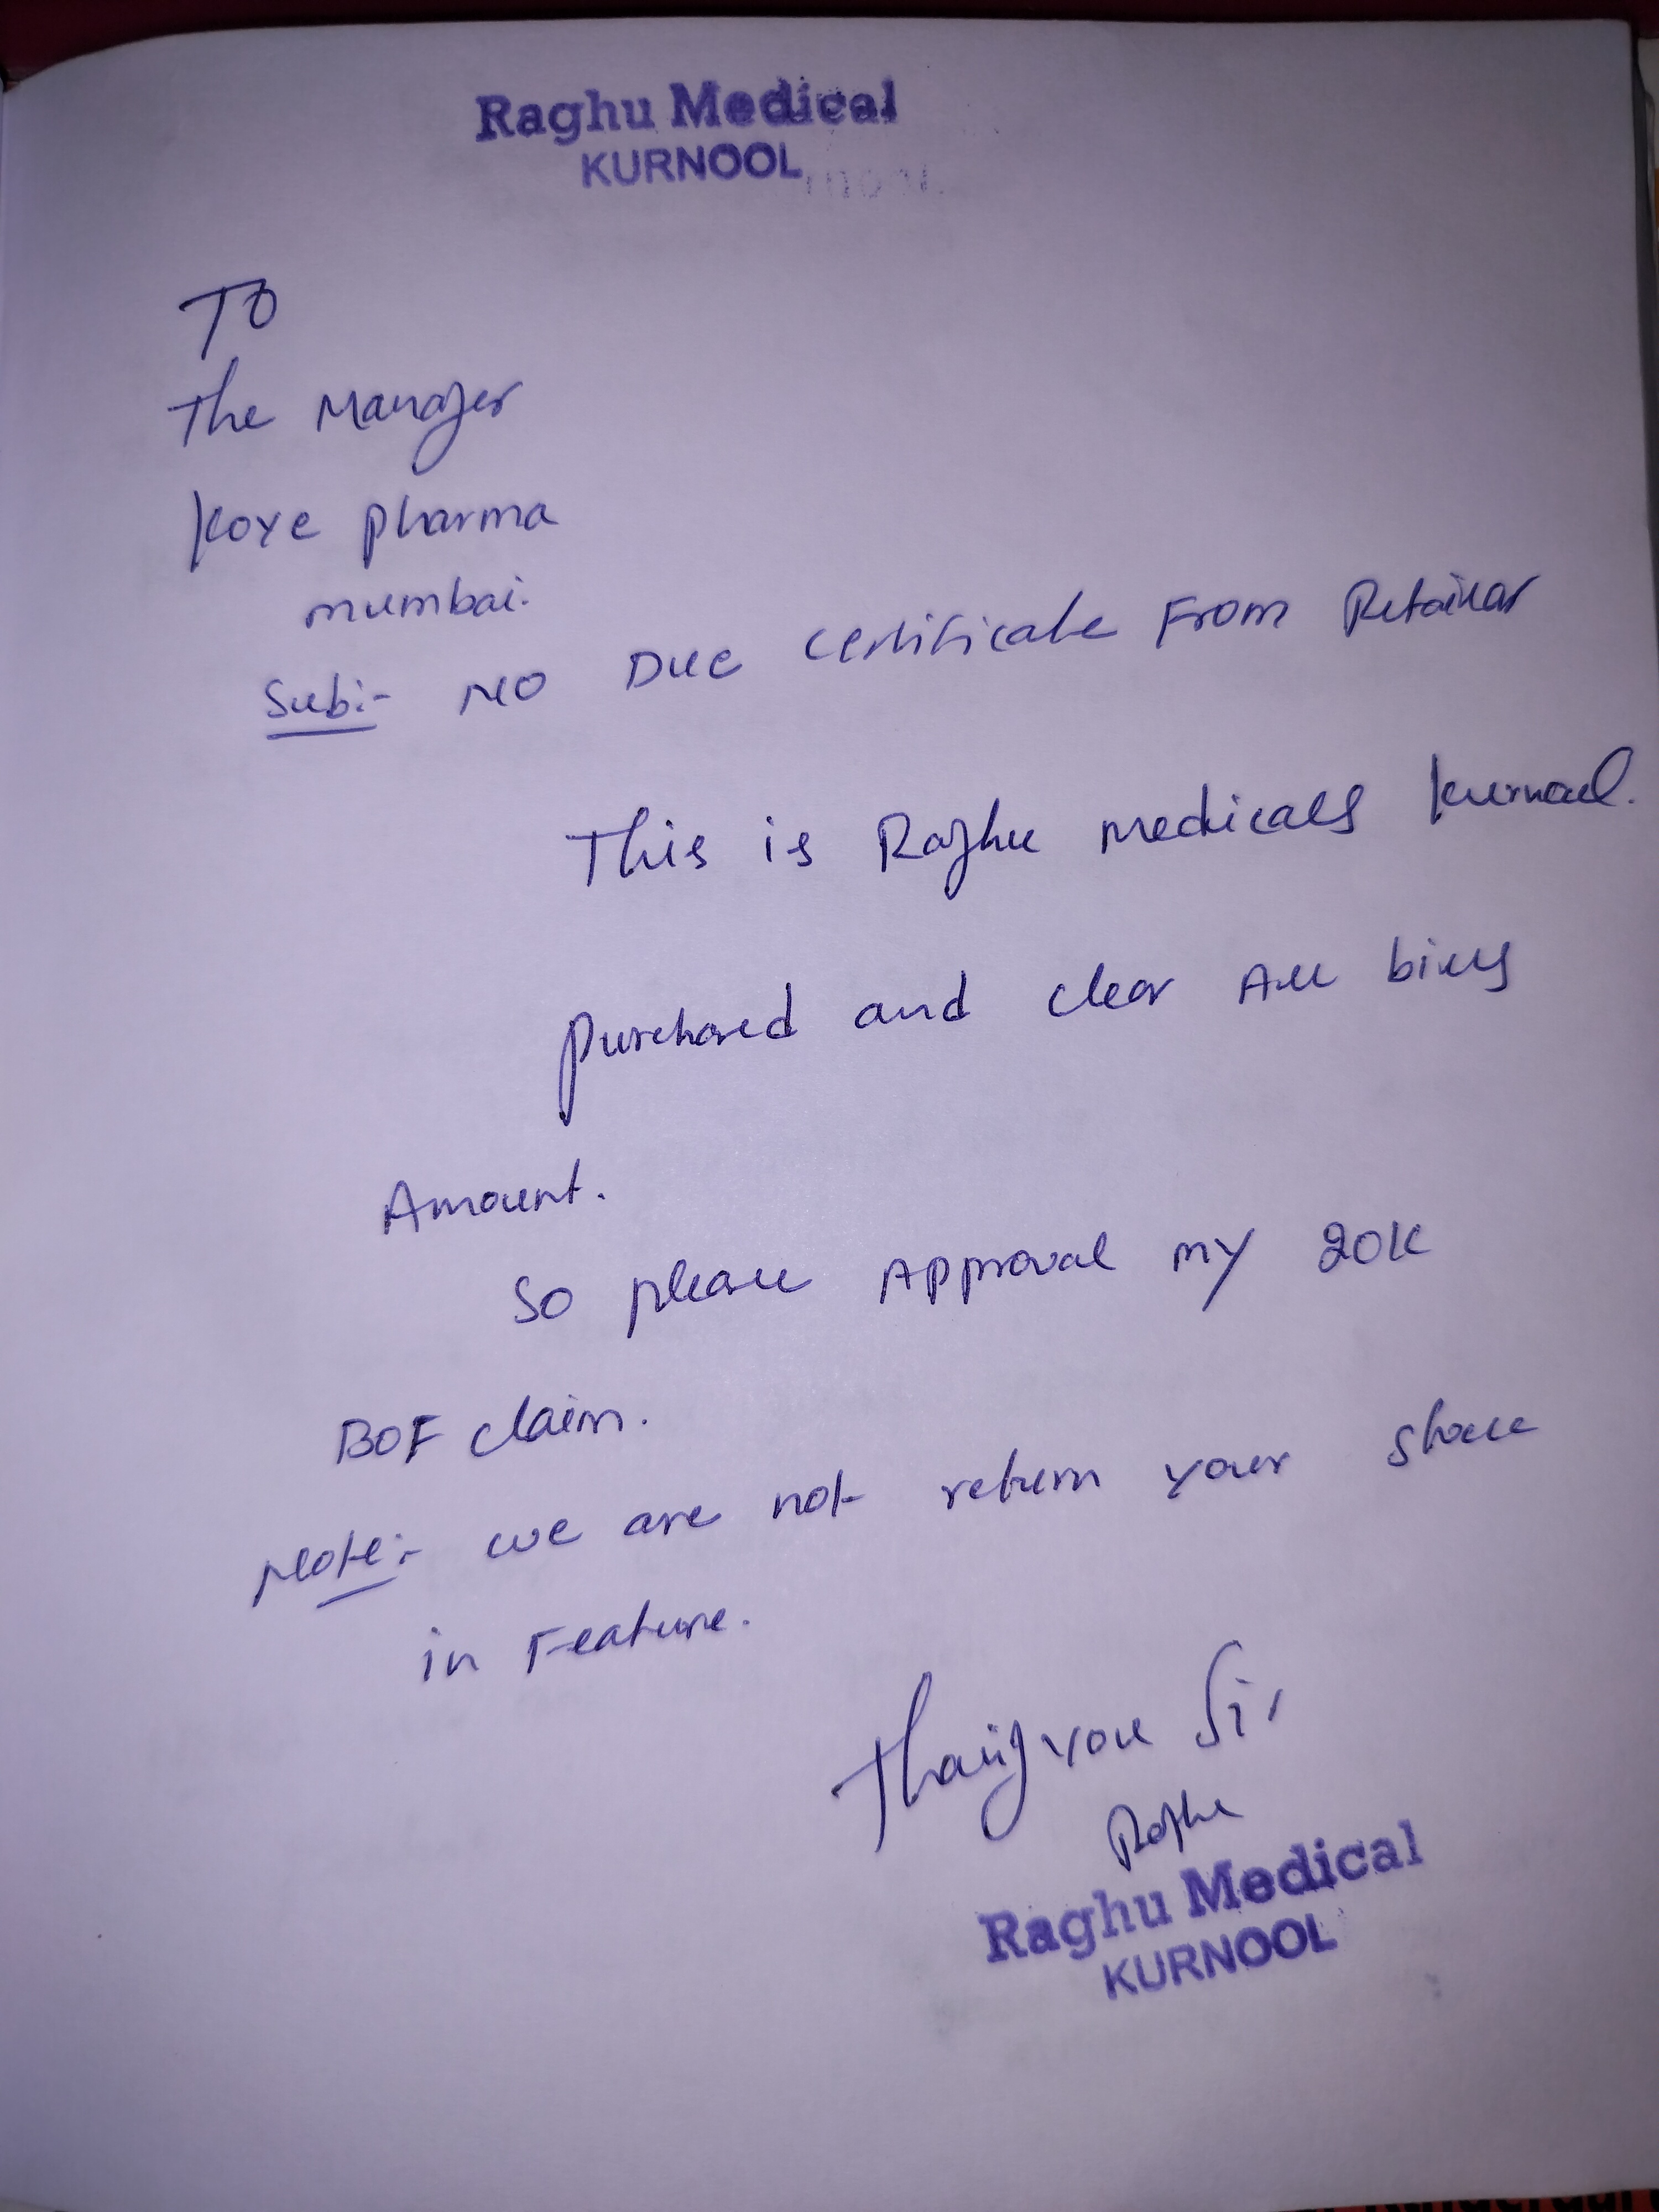 Raghu Medical
KURNOOL
To
The Manager
Koye pharma
mumbai.
Sub:- NO Due certificate From Retailar
This is Raghu medicals kurnool.
purchased and clear All bills
Amount.
So please Approval my 20K
BOF claim.
Note:- we are not return your
in Feature.
Sir
Raghu
Raghu Medical
KURNOOL